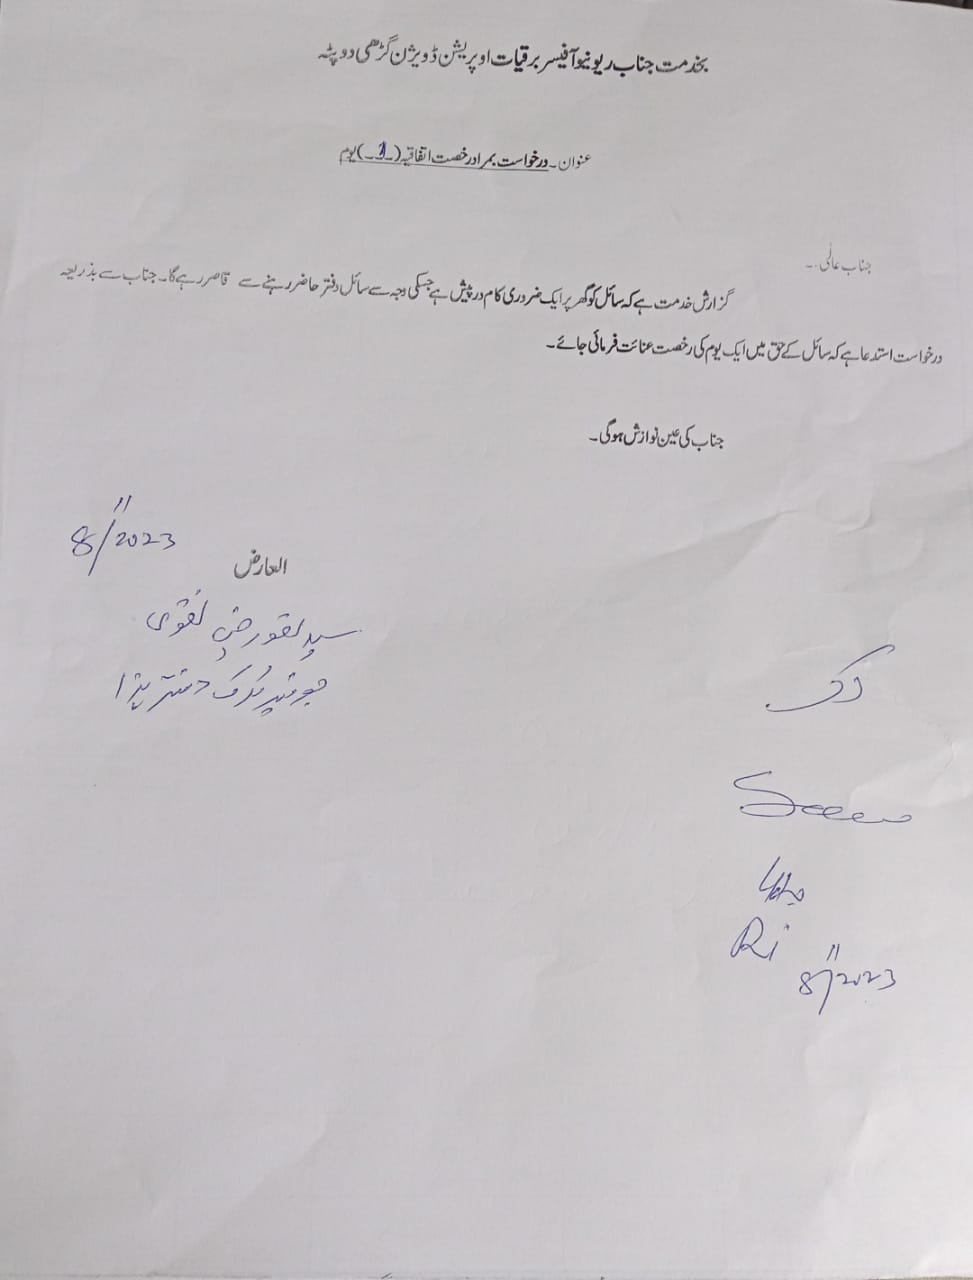 بخدمت جناب ریونیو آفیسر برقیات اوپریشن ڈویژن گڑھی دوپٹہ
عنوان۔ درخواست بمراد رخصت اتفاقیہ (1) یوم
جناب عالی۔
گزارش خدمت ہے کہ سائل کو گھر پر ایک ضروری کام درپیش ہے جسکی وجہ سے سائل دفتر حاضر رہنے سے قاصر رہے گا۔ جناب سے بذریعہ
درخواست استدعا ہے کہ سائل کے حق میں ایک یوم کی رخصت عنائت فرمائی جائے۔
جناب کی عین نوازش ہوگی۔
8/11/2023
العارض
سید نقوی
جونیئر کلرک دفتر ہذا
Ri
8/11/2023